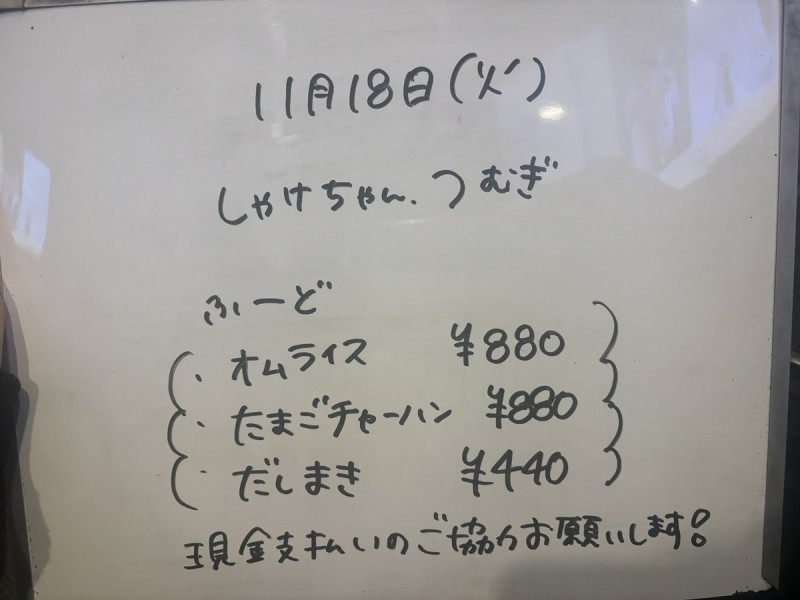 11月18日(火)
しゃけちゃん、つむぎ
ふーど
・オムライス ¥880
・たまごチャーハン ¥880
・だしまき ¥440
現金支払いのご協力お願いします!